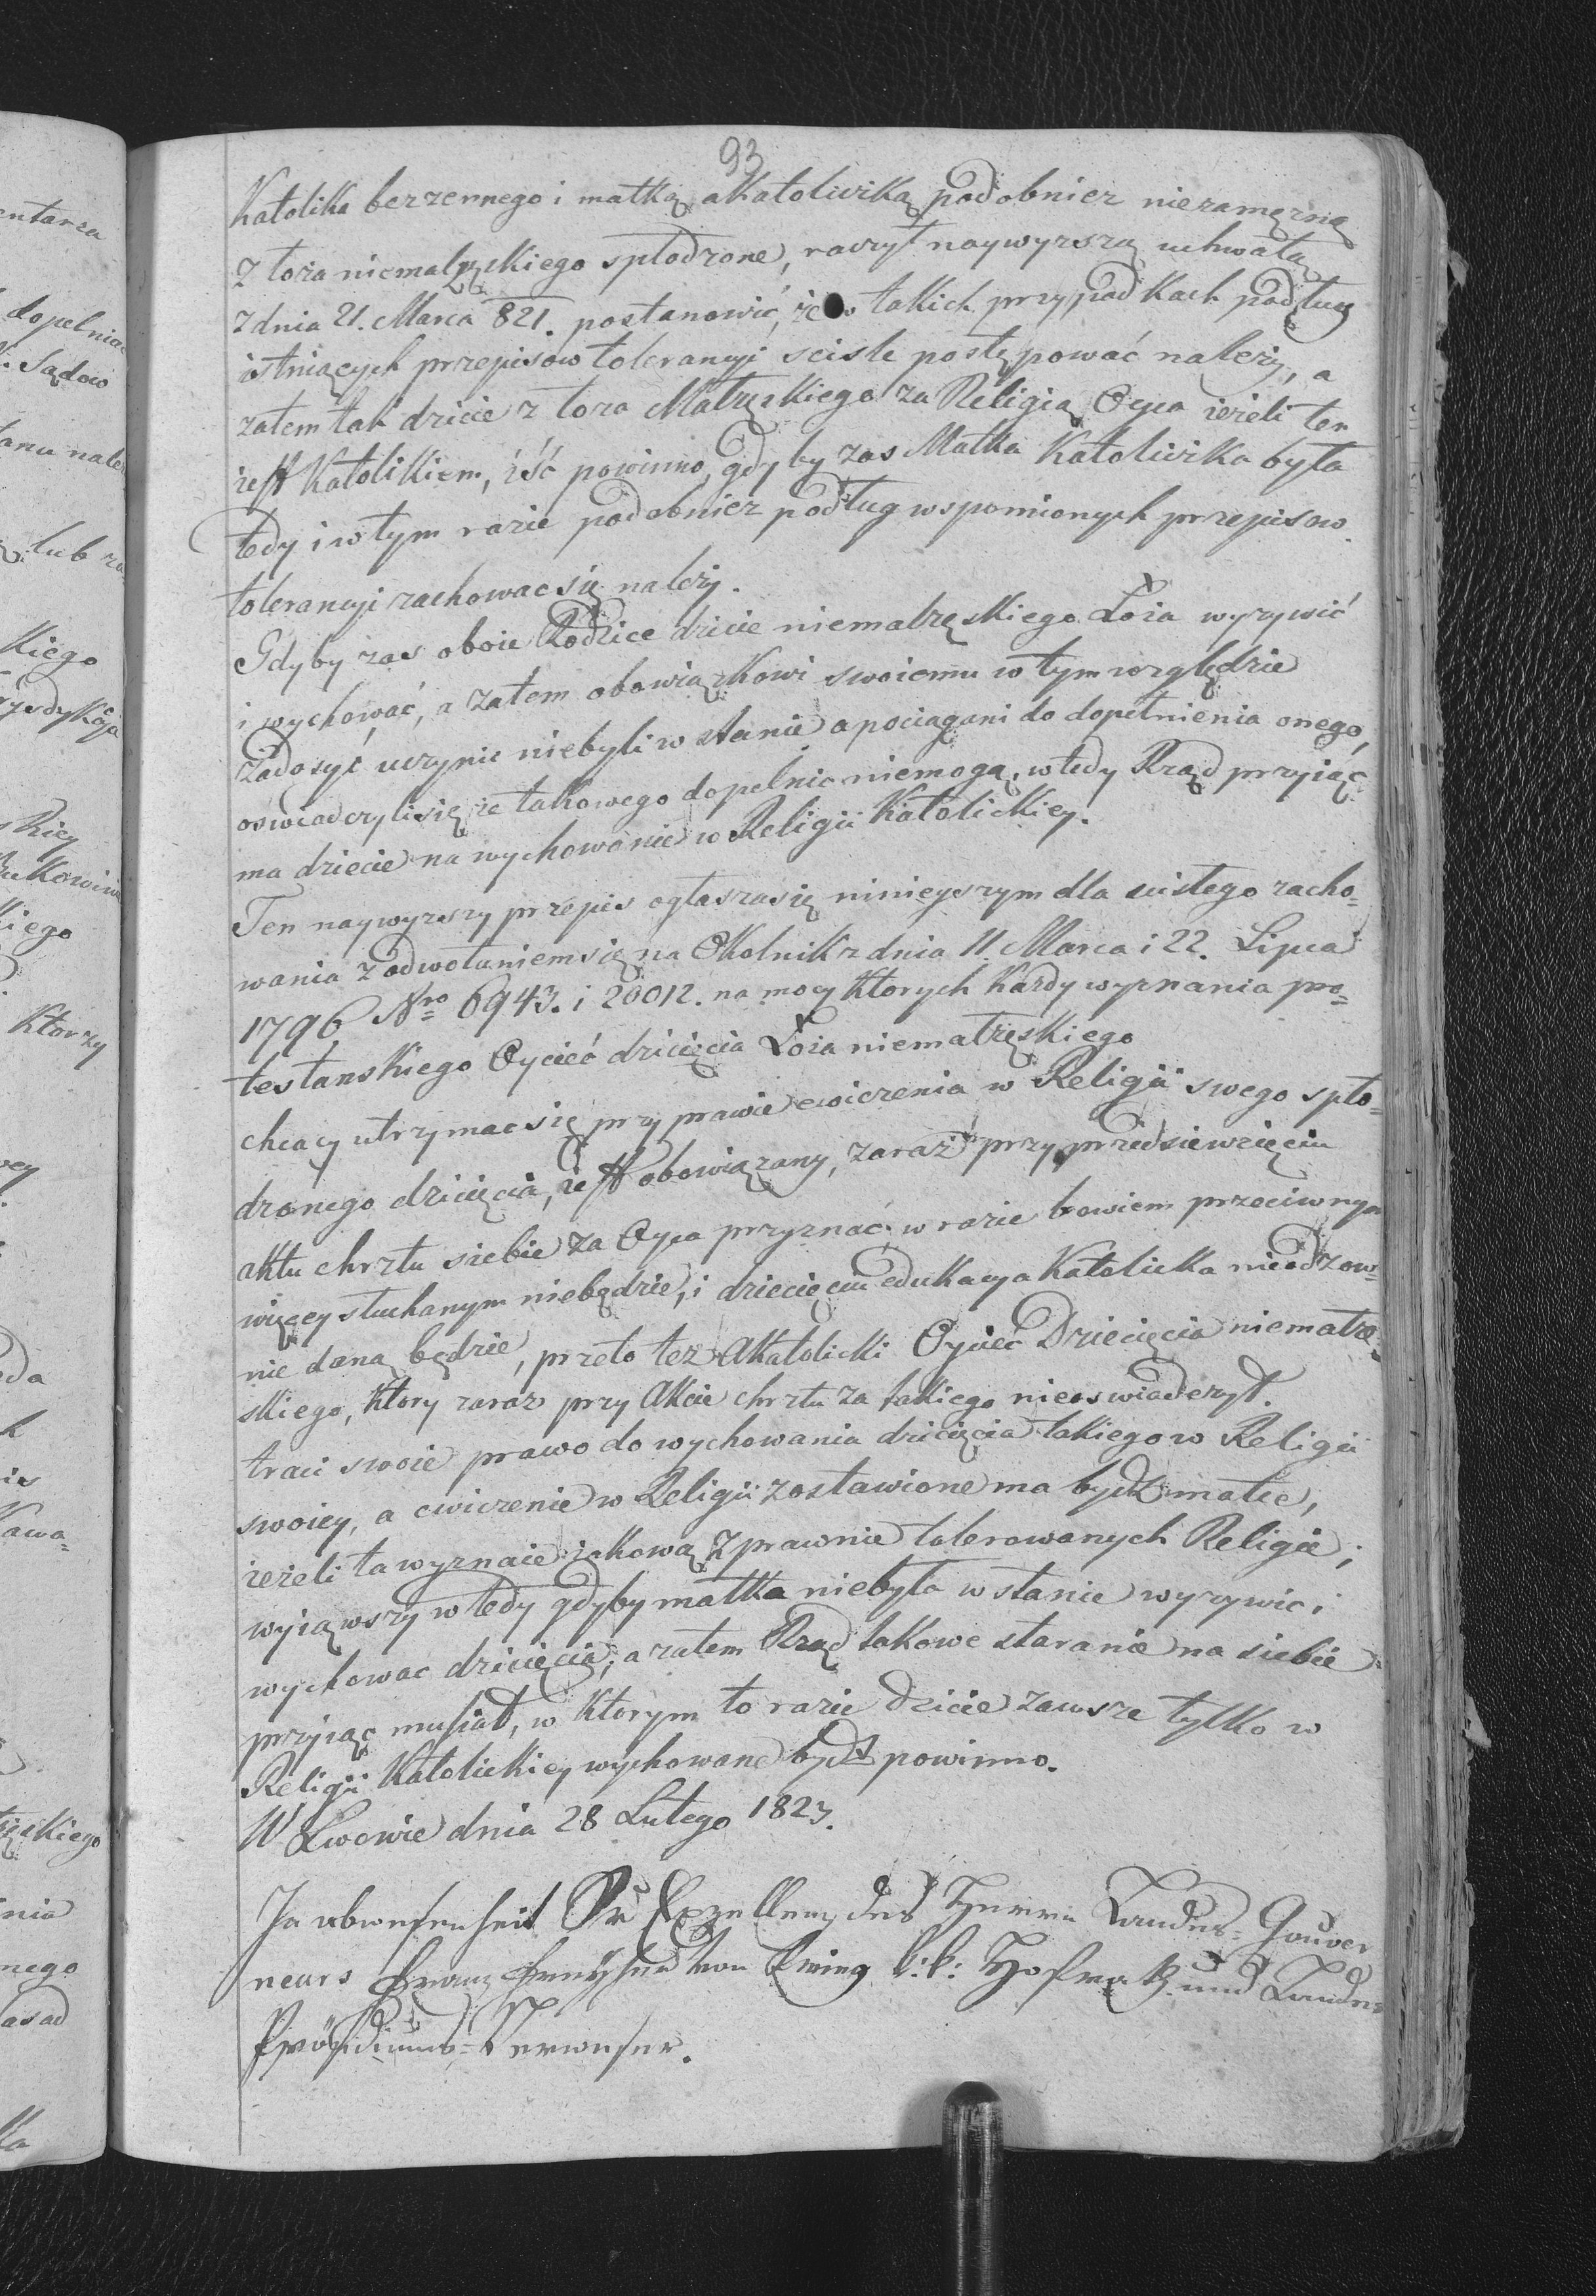 93
Katolika bezzennego i matką akatoliczką podobniez niezamęzną
z łoza niemałzęskiego spłodzone, raczył naywyzszą uchwałą
z dnia 21. Marca 821. postanowić, ze w takich przypadkach podług
istniących przepisow tolerancyi scisle postępować nalezy, a
zatem tak dziecie z łoza Małzęskiego za Religią Oyca iezeli ten
iest Katolikiem, iść powinno, gdyby zas Matka Katoliczka była
tedy i w tym razie podobniez podług wspomionych przepisow
tolerancyi zachowac się nalezy.
Gdyby zas oboie Rodzice dziecie niemałzęskiego Łoza wyzywić
i wychować, a zatem obowiązkowi swoiemu w tym względzie
zadosyć uczynic niebyli w stanie a pociągani do dopełnienia onego,
oswiadczyli się ze takowego dopełnic niemogą, wtedy Rząd przyiąc
ma dziecie na wychowanie w Religii Katolickiey.
Ten naywyzszy przepis ogłasza się ninieyszym dla scisłego zacho=
wania z odwołaniem się na Okolnik z dnia 11. Marca i 22. Lipca
1796 Nro 6943. i 20012. na mocy Ktorych Kazdy wyznania pro=
testanskiego Oyciec dziecięcia Łoza niemałzęskiego
chcacy utrzymac się przy prawie cwiczenia w Religii swego spło=
dzonego dziecięcia, iest obowiązany, zaraz przy przedsiewzięciu
aktu chrztu siebie za Oyca przyznać w razie bowiem przeciwnym
więcey słuchanym niebędzie, i dziecięciu edukacya Katolicka nieodzow=
nie daną będzie, przeto tez akatolicki Oyciec Dziecięcia niematzę=
skiego, Ktory zaraz przy akcie chrztu za takiego nieoswiadczył.
traci swoie prawo do wychowania dziecięcia takiego w Religii
swoiey, a cwiczenie w Religii zostawione ma bydz matce,
iezeli ta wyznaie iakową z prawnie tolerowanych Religie;
wyiąwszy wtedy gdyby matka niebyła w stanie wyzywic i
wychowac dziecięcia; a zatem Rząd takowe staranie na siebie
przyiąc musiał, w Ktorym to razie dziecie zawsze tylko w
Religii Katolickiey wychowane bydz powinno.
W Lwowie dnia 28 Lutego 1823.
In abwesenheit Sr Exzellenz des Herrn Landes=Gouver
neurs Franz Freyherr von Krieg k: k: Hofrath und Landes
Präsidiums=Verweser.
entarza
dopełniac
Sądow
lub
kiego
kiey
kiego
Ktorzy
nego